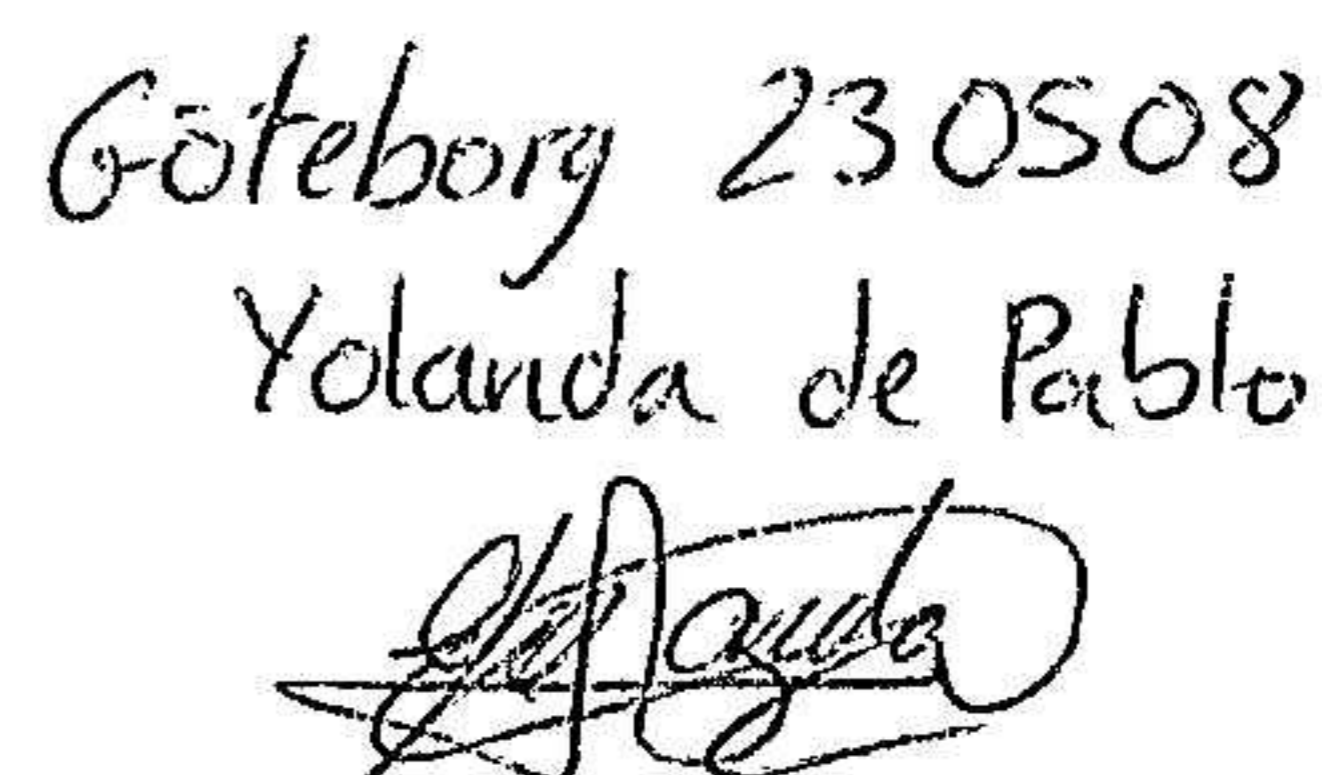 Göteborg 230508
Yolanda de Pablo